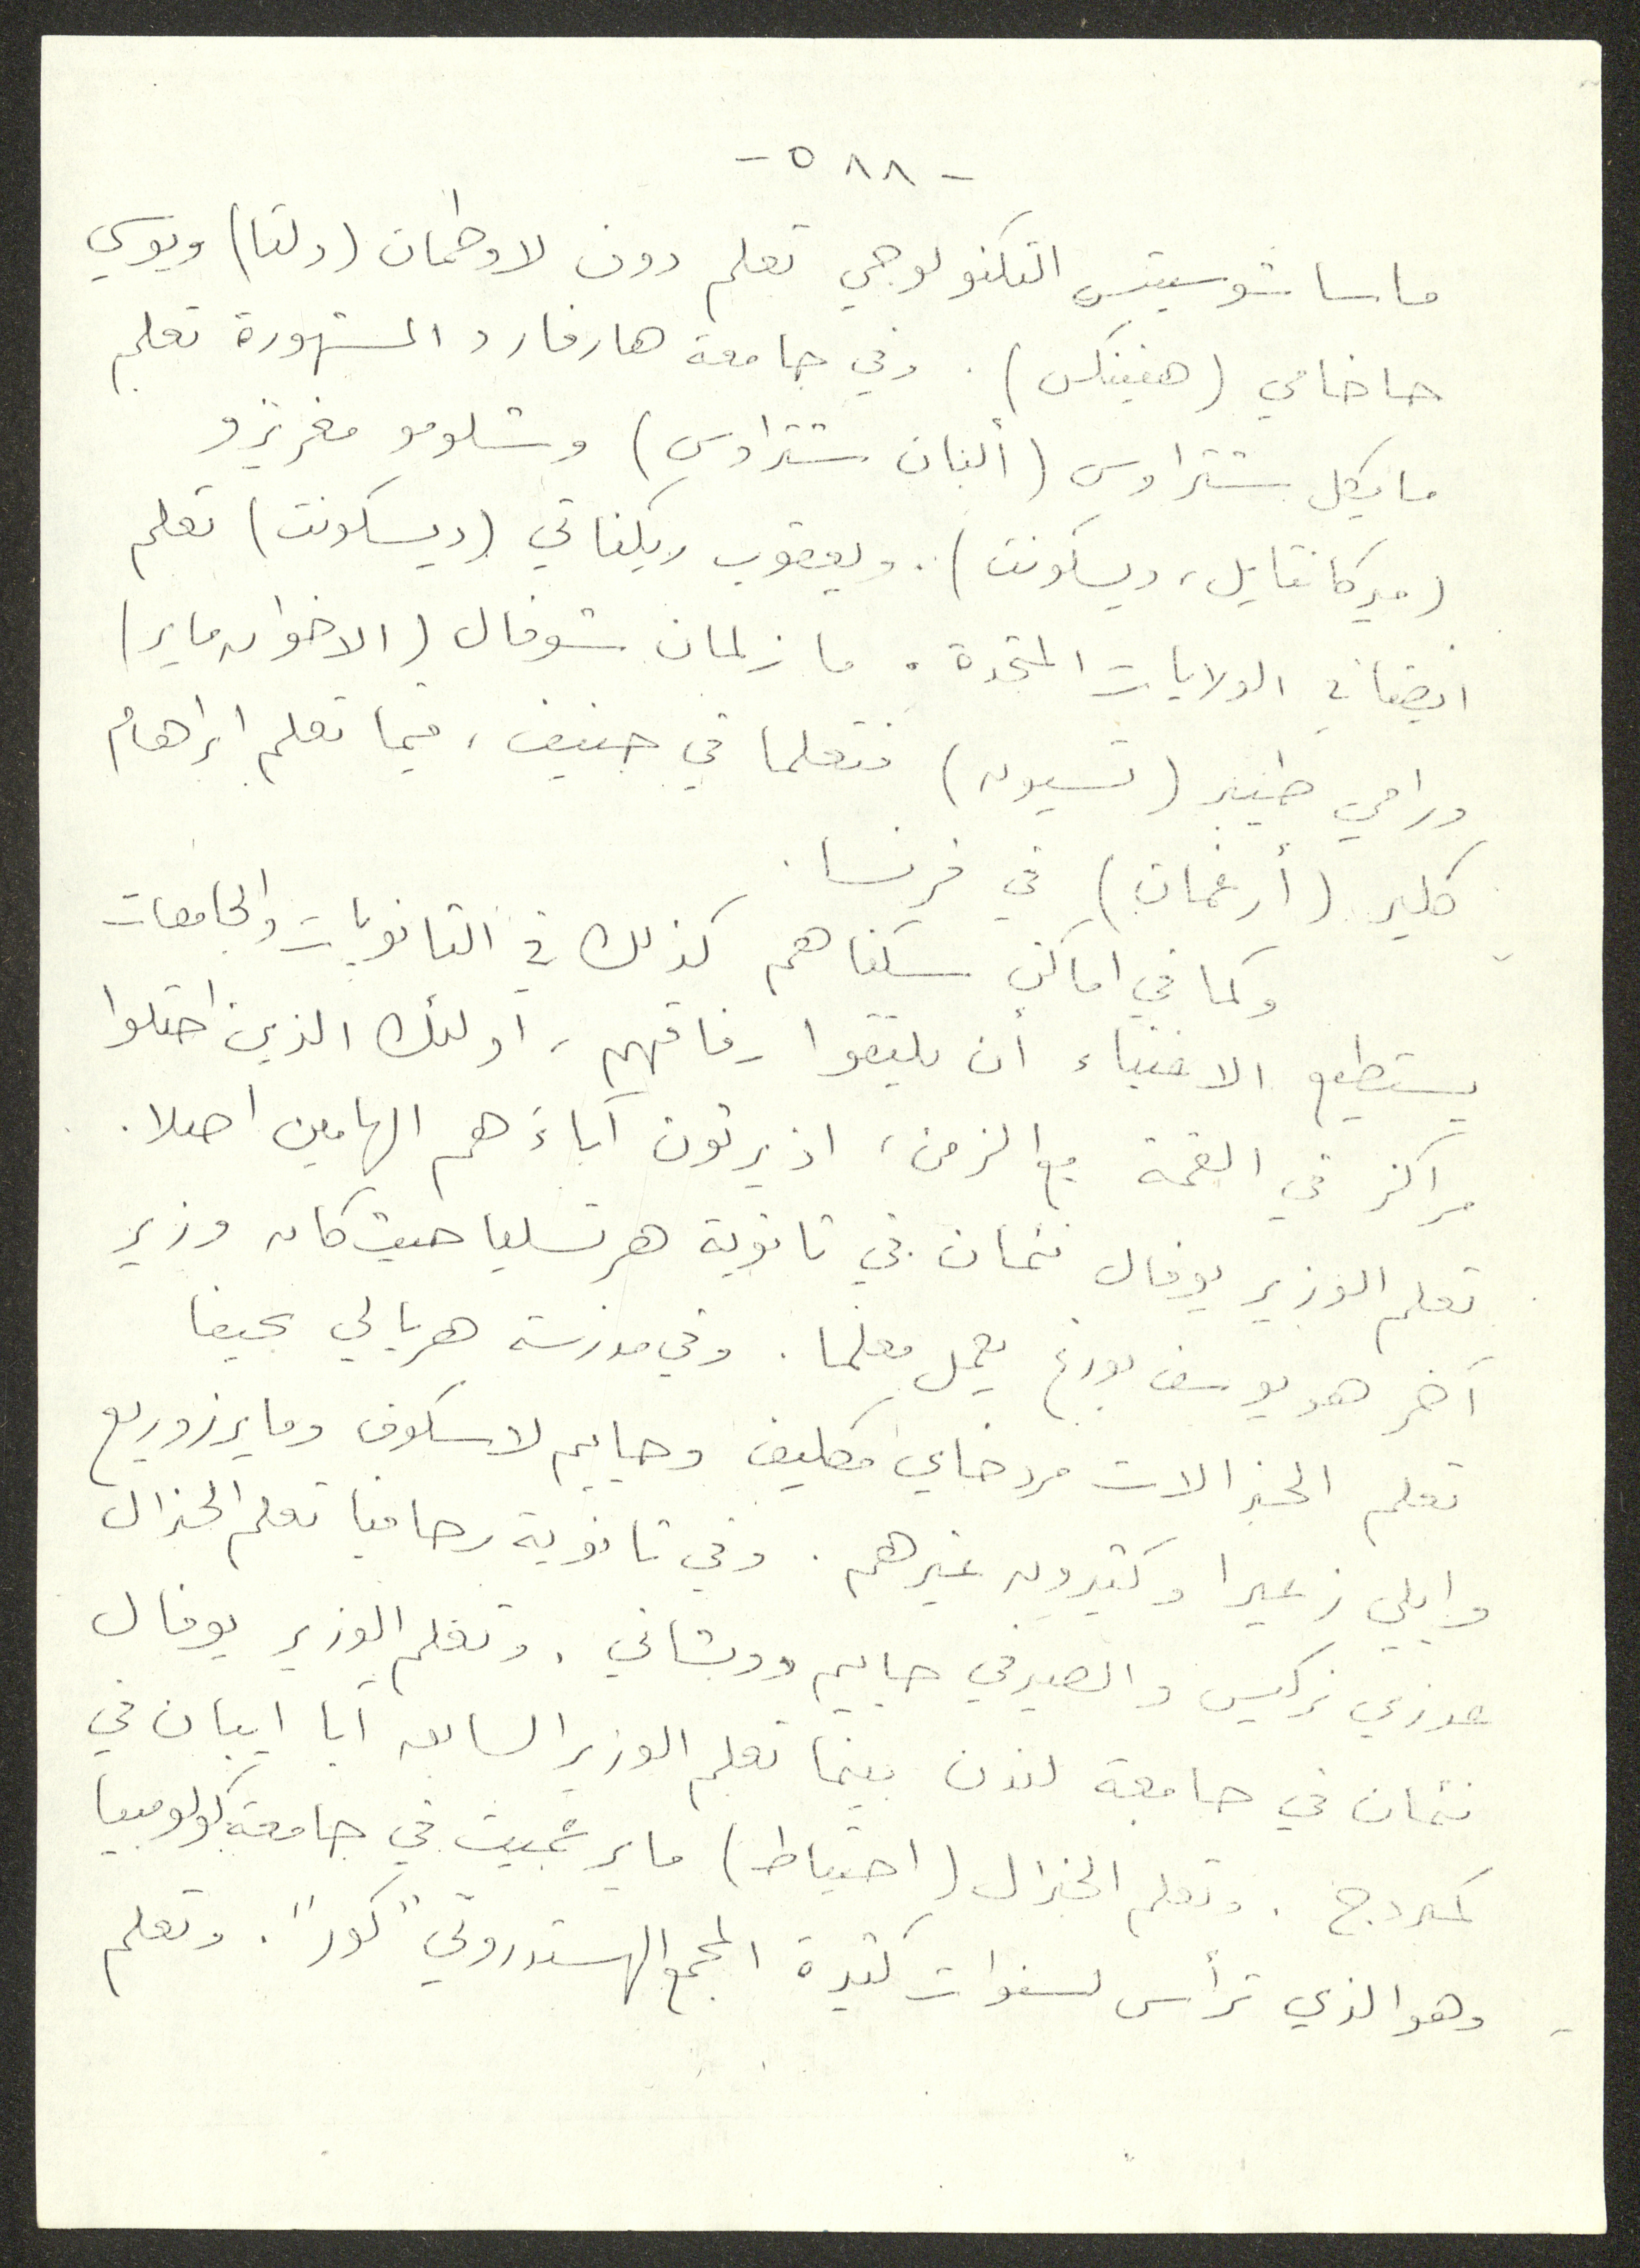 - ٥٨٨ -
ماساشوسيتس التكنولوجي تعلم دوف لاوطمان (دلتا) ويوسي
حاخامي (هفينكس). وفي جامعة هارفارد المشهورة تعلم
مايكل شتراوس (ألبان شتراوس) وشلومو مغريزو
(ميركانتايل، ديسكونت). ويعقوب ريكناتي (ديسكونت) تعلم
ايضا في الولايات المتحدة. ما زلمان شوفال (الاخوان ماير)
ورامي طيبر (تسيون) فتعلما في جنيف، فيما تعلم ابراهام
كلير (أرغمان) في فرنسا.
وكما في اماكن سكناهم كذلك في الثانويات والجامعات
يستطيع الاغنياء أن يلتقوا رفاقهم، اولئك الذين احتلوا
مراكز في القمة مع الزمن، اذ يرثون آباءهم الهامين اصلا.
تعلم الوزير يوفال نئمان في ثانوية هرتسليا حيث كان وزير
آخر هو يوسف بورغ يعمل معلما. وفي مدرسة هريالي بحيفا
تعلم الجنرالات مردخاي مكليف وحاييم لاسكوف وماير زوريع
وايلي زعيرا وكثيرون غيرهم. وفي ثانوية رحافيا تعلم الجنرال
عوزي نركيس والصيرفي حاييم دوبشاني. وتعلم الوزير يوفال
نئمان في جامعة لندن بينما تعلم الوزير السابق آبا ايبان في
كمبردج. وتعلم الجنرال (احتياط) ماير عميت في جامعة كولومبيا
وهو الذي ترأس لسنوات كثيرة المجمع الهستدروتي "كور". وتعلم